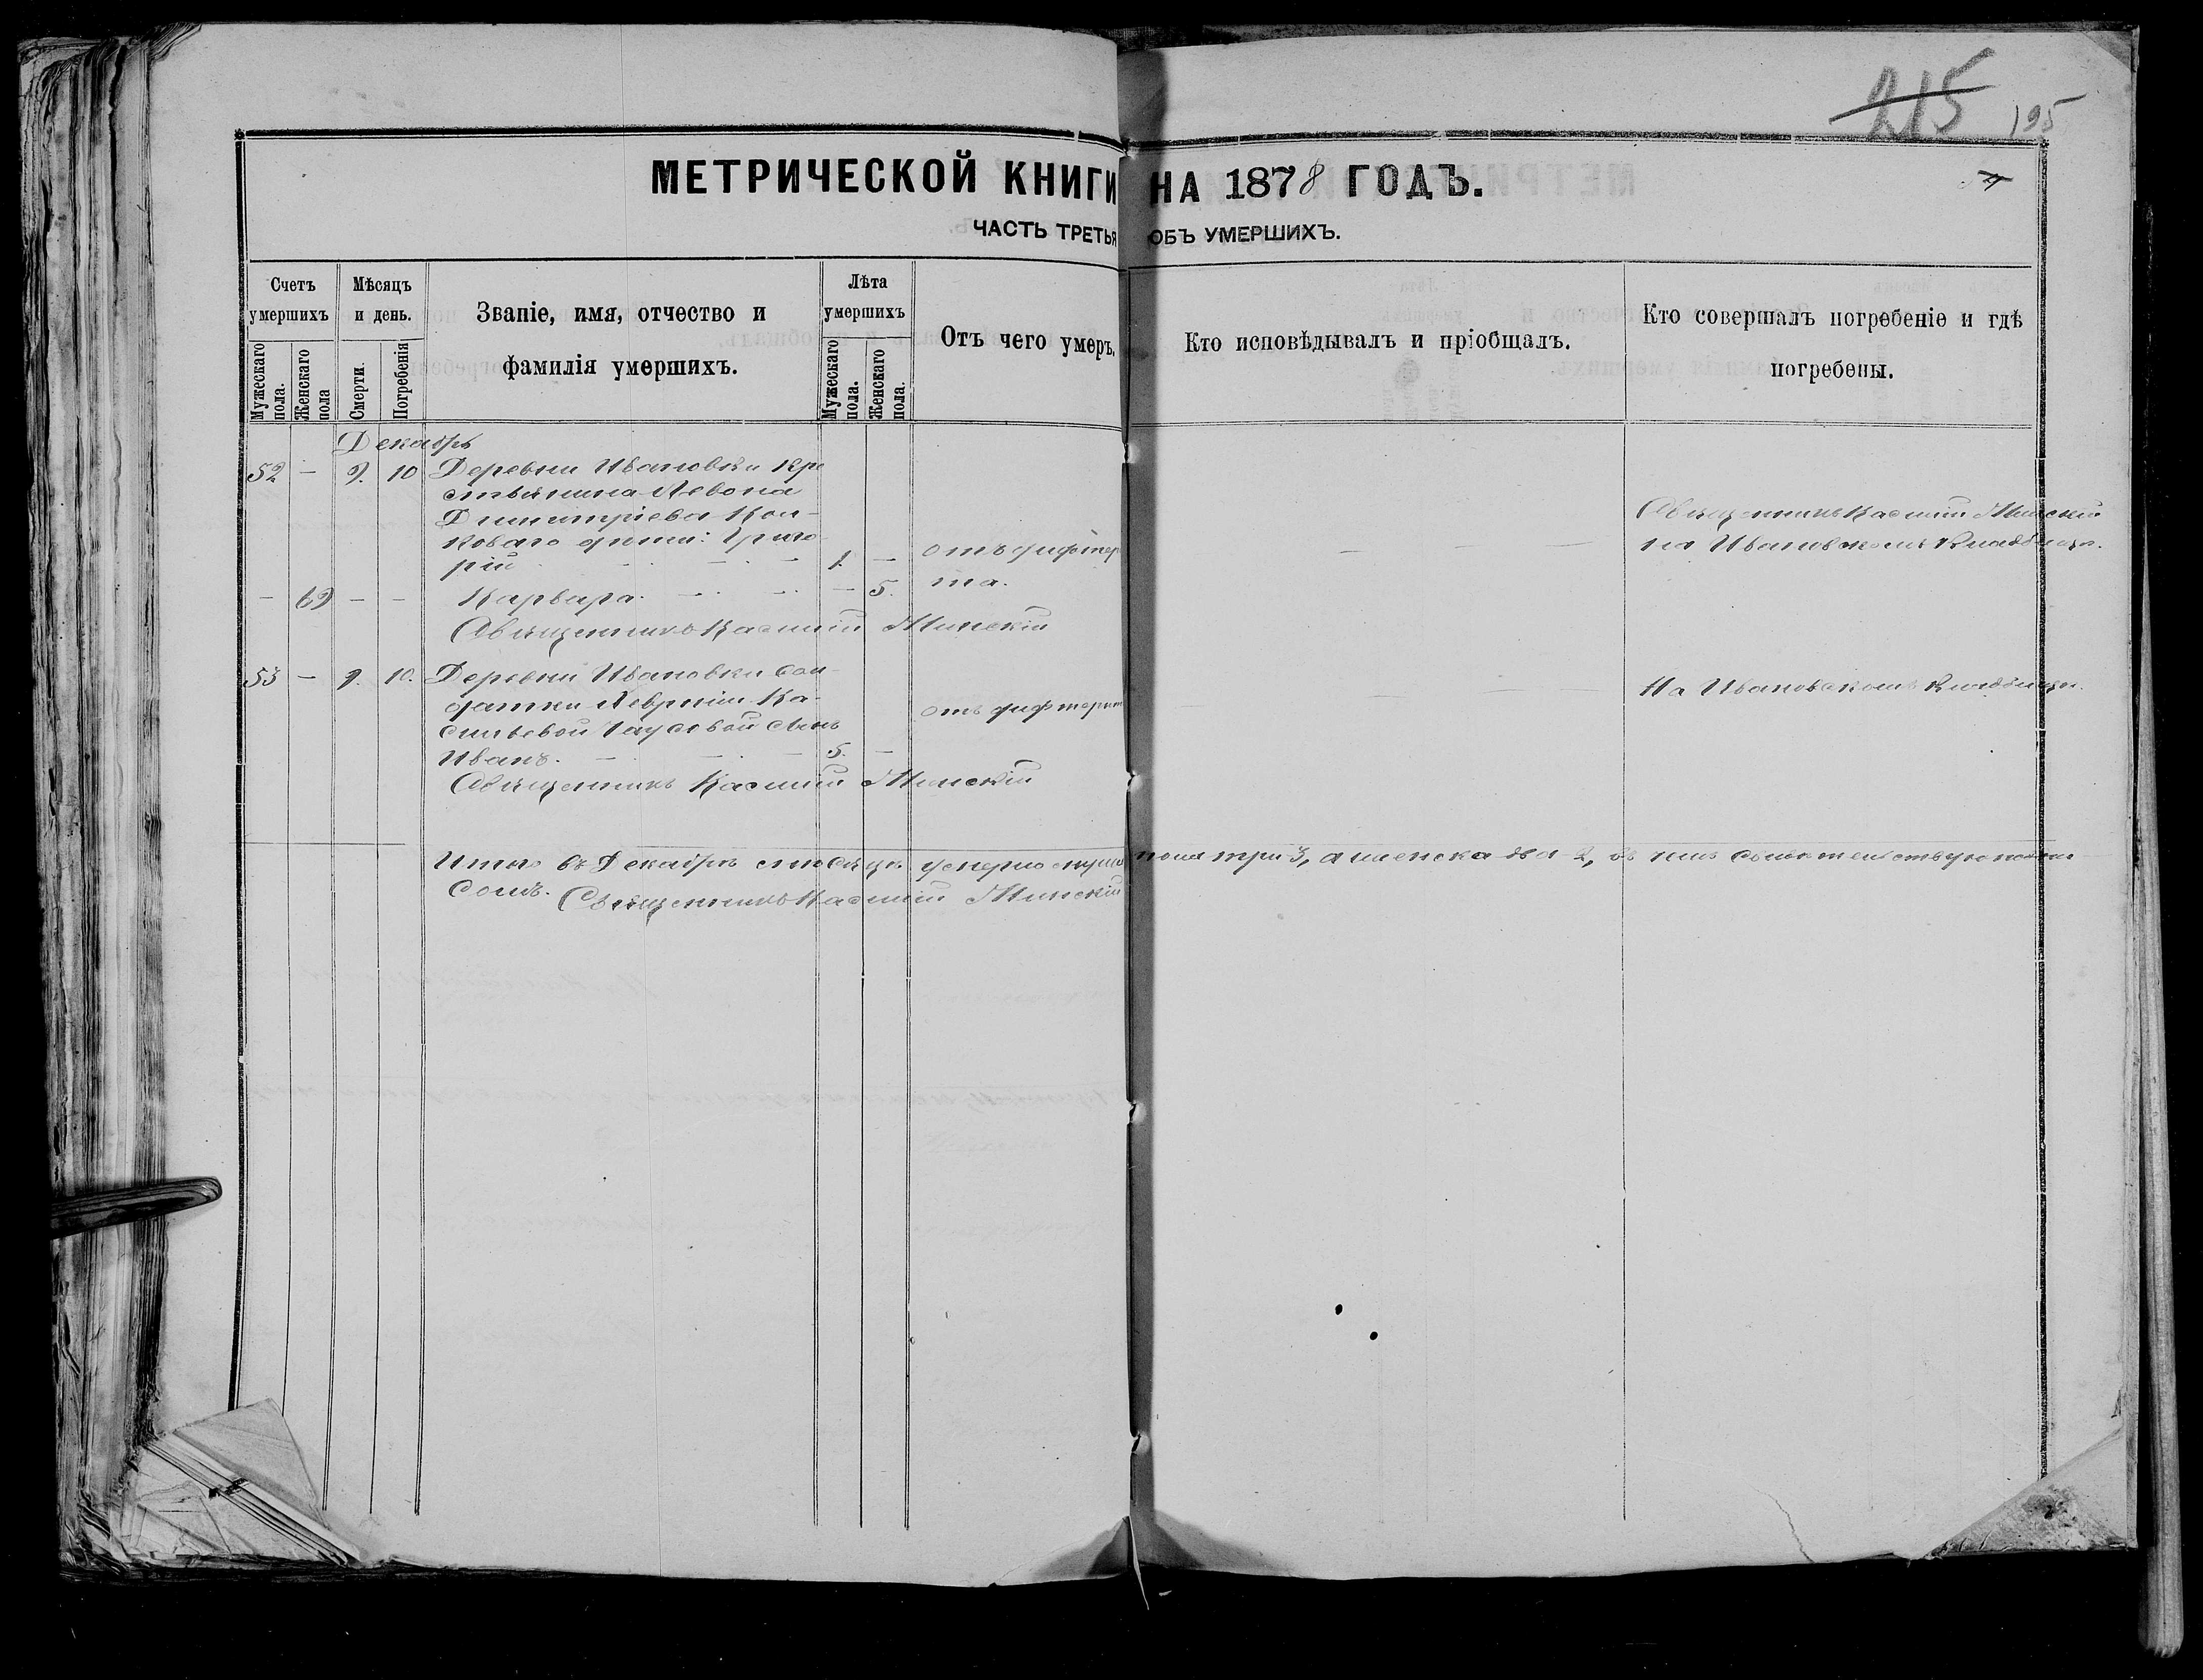 215 195
МЕТРИЧЕСКОЙ КНИГИ НА 1878 ГОДЪ.
ЧАСТЬ ТРЕТЬЯ ОБЪ УМЕРШИХЪ.
Счетъ умершихъ
Мужескаго пола.
Женскаго пола
Мѣсяцъ и день.
Смерти.
Погребенія
Званіе, имя, отчество и
фамилія умершихъ.
Лѣта умершихъ
Мужескаго пола.
Женскаго пола.
Отъ чего умеръ.
Кто исповѣдывалъ и пріобщалъ.
Кто совершалъ погребеніе и гдѣ
погребены.
Декабрь
52 — 9. 10 Деревни Ивановки Кре
стьянина Левона
Димитріева
коваго дѣти: Григо
рій 1. — отъ дифтер
та.
Священникъ Касмій Минскій
на Ивановскомъ Кладбищѣ.
— 69 — — Варвара. — 5.
Священникъ Касмій Минскій
53 — 9. 10. Деревни Ивановки Сол
датки Ка-
сильевой сынъ
Иванъ. 5. — отъ дифтерит
На Ивановскомъ Кладбищѣ.
Священникъ Касмій Минскій
Итого въ Декабрѣ мѣсяцѣ умерло муж пола три 3, а женска два 2, въ чемъ свидѣтельствуемъ
Священникъ Касмій Минскій